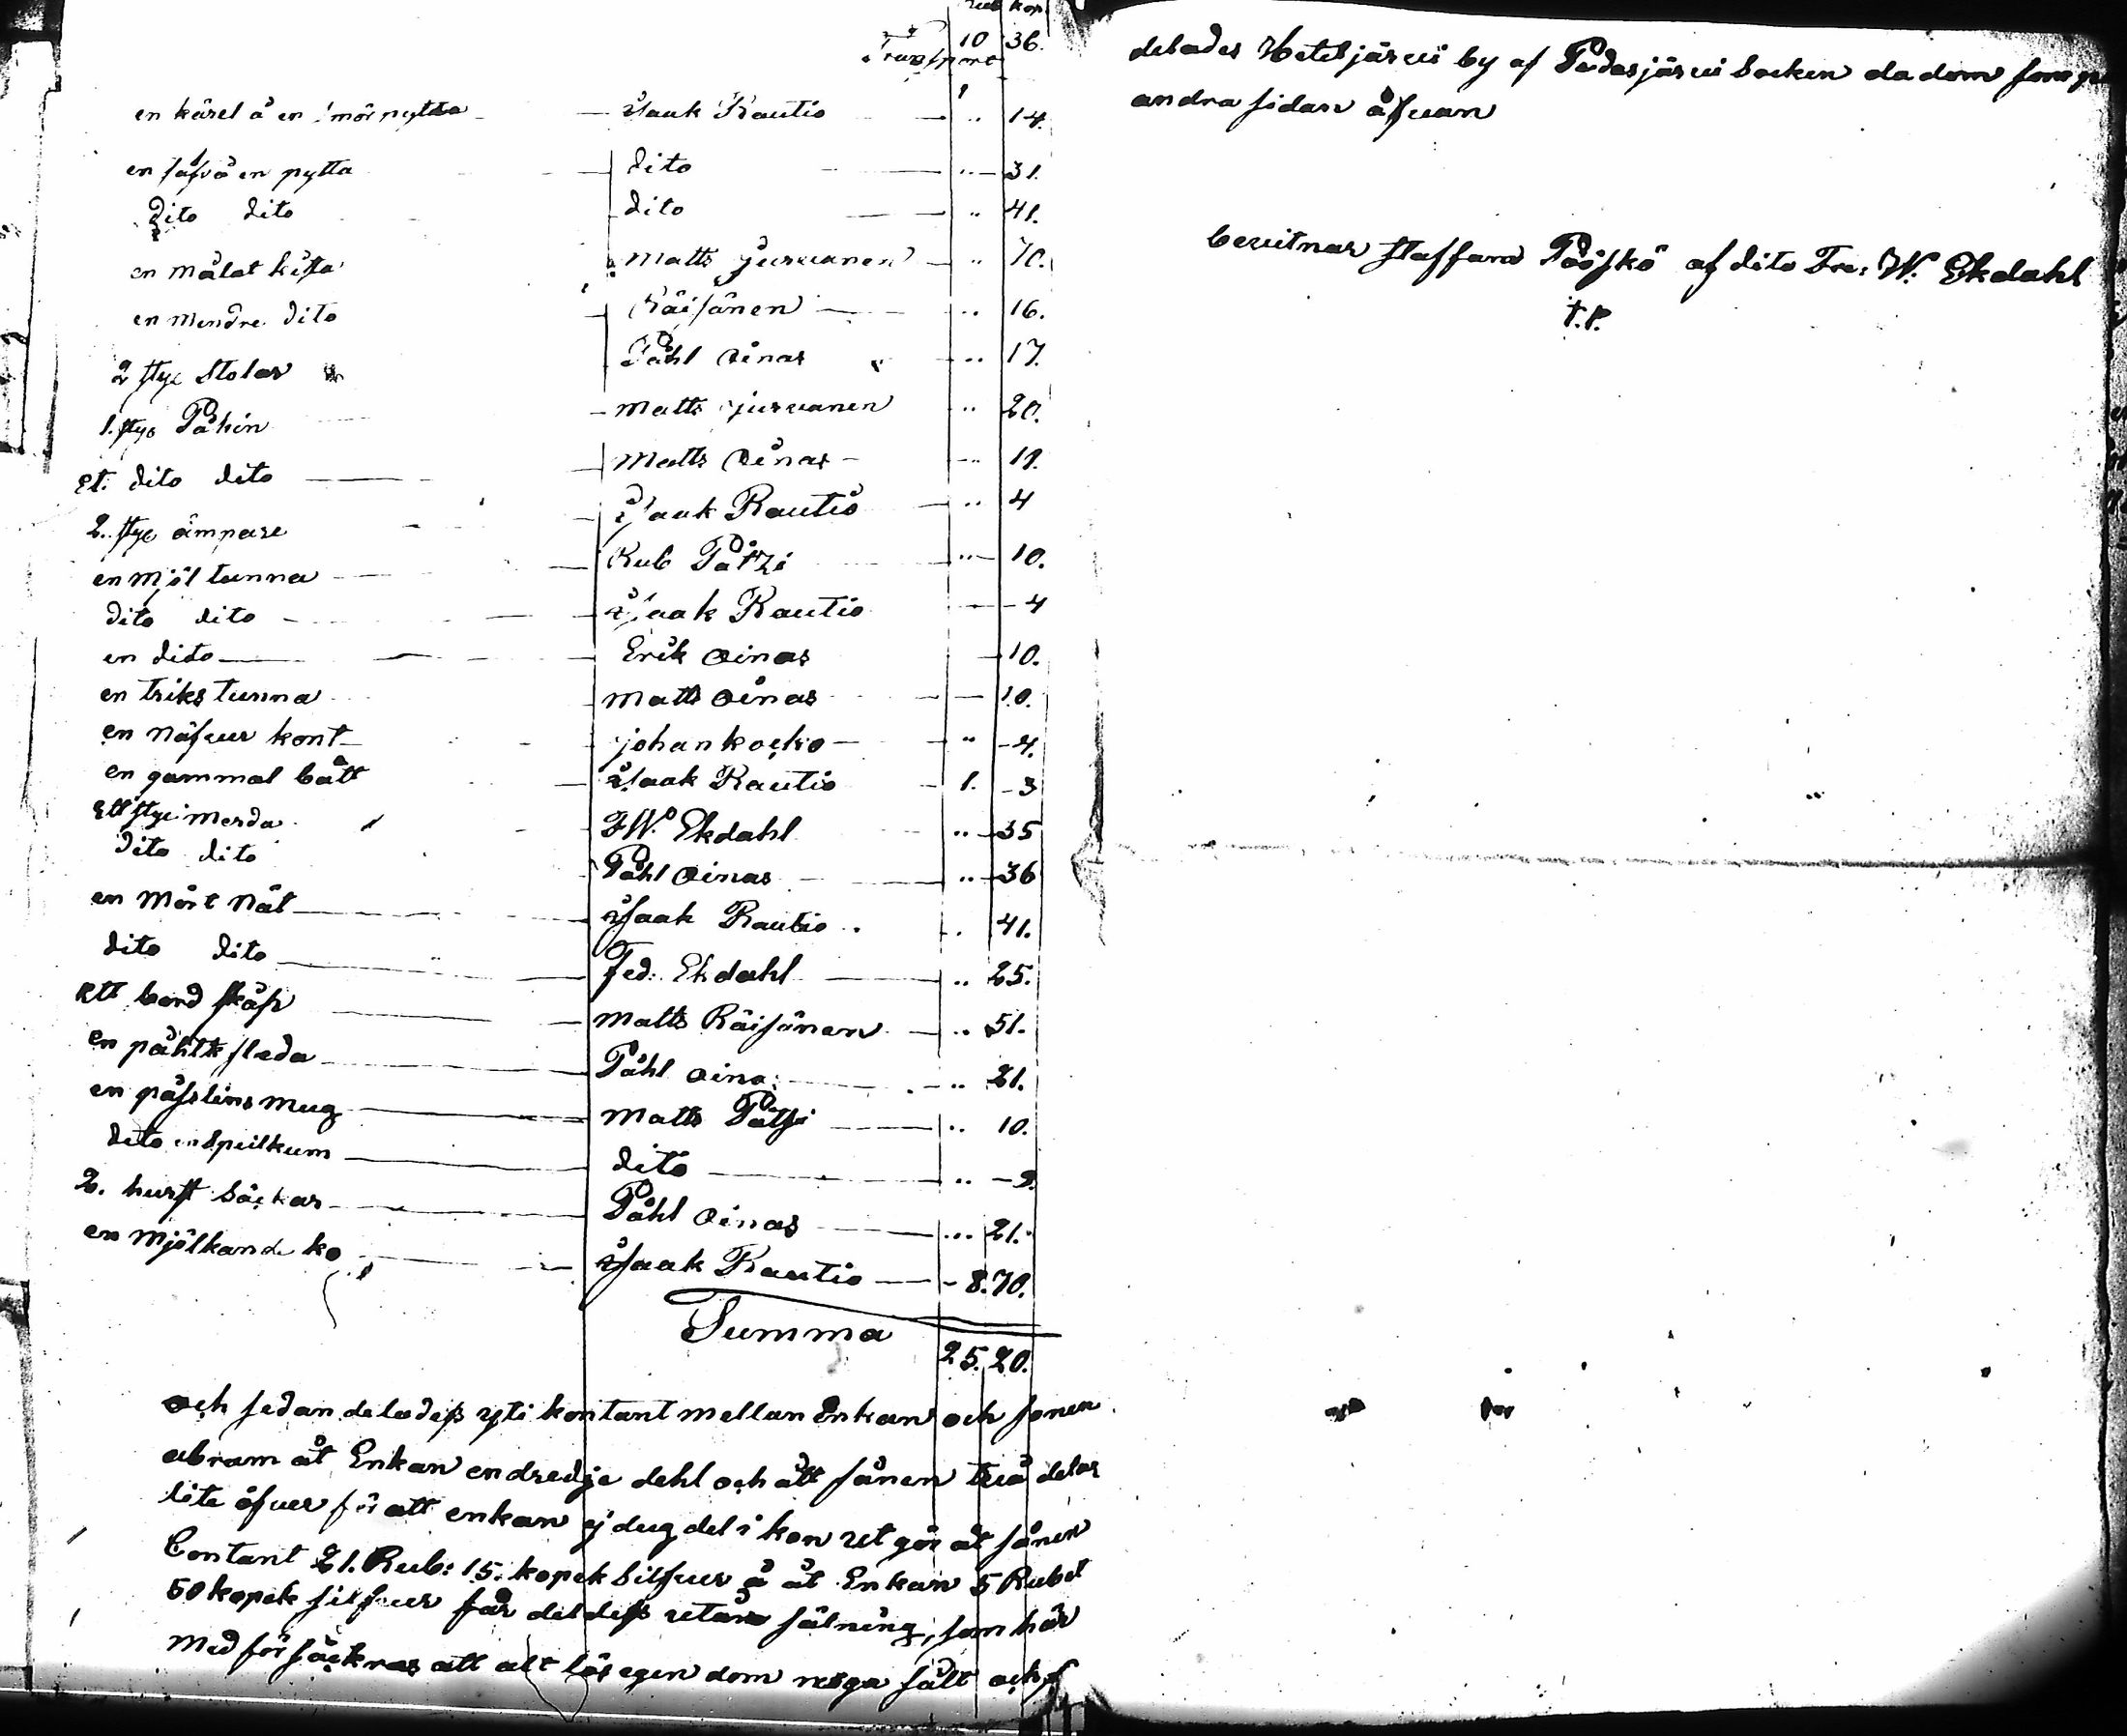 Rub kop.
Transport 10 36.
en kärel å en smör pytta Isaak Rautio .. 14.
en såfvå en pytta dito .. 31.
dito dito dito .. 41.
en målat kista Matts Jurvanen .. 70.
en mendre dito Räisänen .. 16.
2 stye stolar Påhl Oinas .. 17.
1. stye Påhin Matts jurvanen .. 20.
Et. dito dito Matts Oinas .. 11.
2. stye ämpare Isaak Rautio .. 4
en mjöl tunna Rub Pätzi .. 10.
dito dito Isaak Rautio 4
en dito Erik Oinas 10.
en triks tunna Matts Oinas 10.
en näfver kont johan kocko " 4.
en gammal bått Isaak Rautio 1. 3
Ett stye merda F W. Ekdahl .. 35
dito dito Påhl Oinas .. 36
en mört nät Isaak Rautio .. 41.
dito dito Fed: Ekdahl .. 25.
Ett bord skåp Matts Räisänen .. 51.
en påhlk slæda Påhl Oina .. 21.
en påsslins mug Matts Pätsi .. 10.
dito en Speilkum dito .. 9.
2. hurst säckar Påhl Oinas ... 21.
en mjölkande ko Isaak Rautio 8.70.
Summa 25.20.
och sedan deladess yti kontant mellan Enkan och sonen
abram åt Enkan en dredje dehl och ått sånen två delar
lite öfver för att enkan ej dug del i kon ret gör åt sånen
Contant 21. Rub: 15. kopek Silfver å åt Enkan 5 Rubel
50 kopek silfver får del dess retära sälning, som här
med försäckras att alt lös egen dom noga sålt och
delades Hetejärvi by af Pudasjärvi Socken da dom som
andra sidan åfvan
bevitnar staffan Pööskö af dito Fre: W. Ekdahl
t.P.